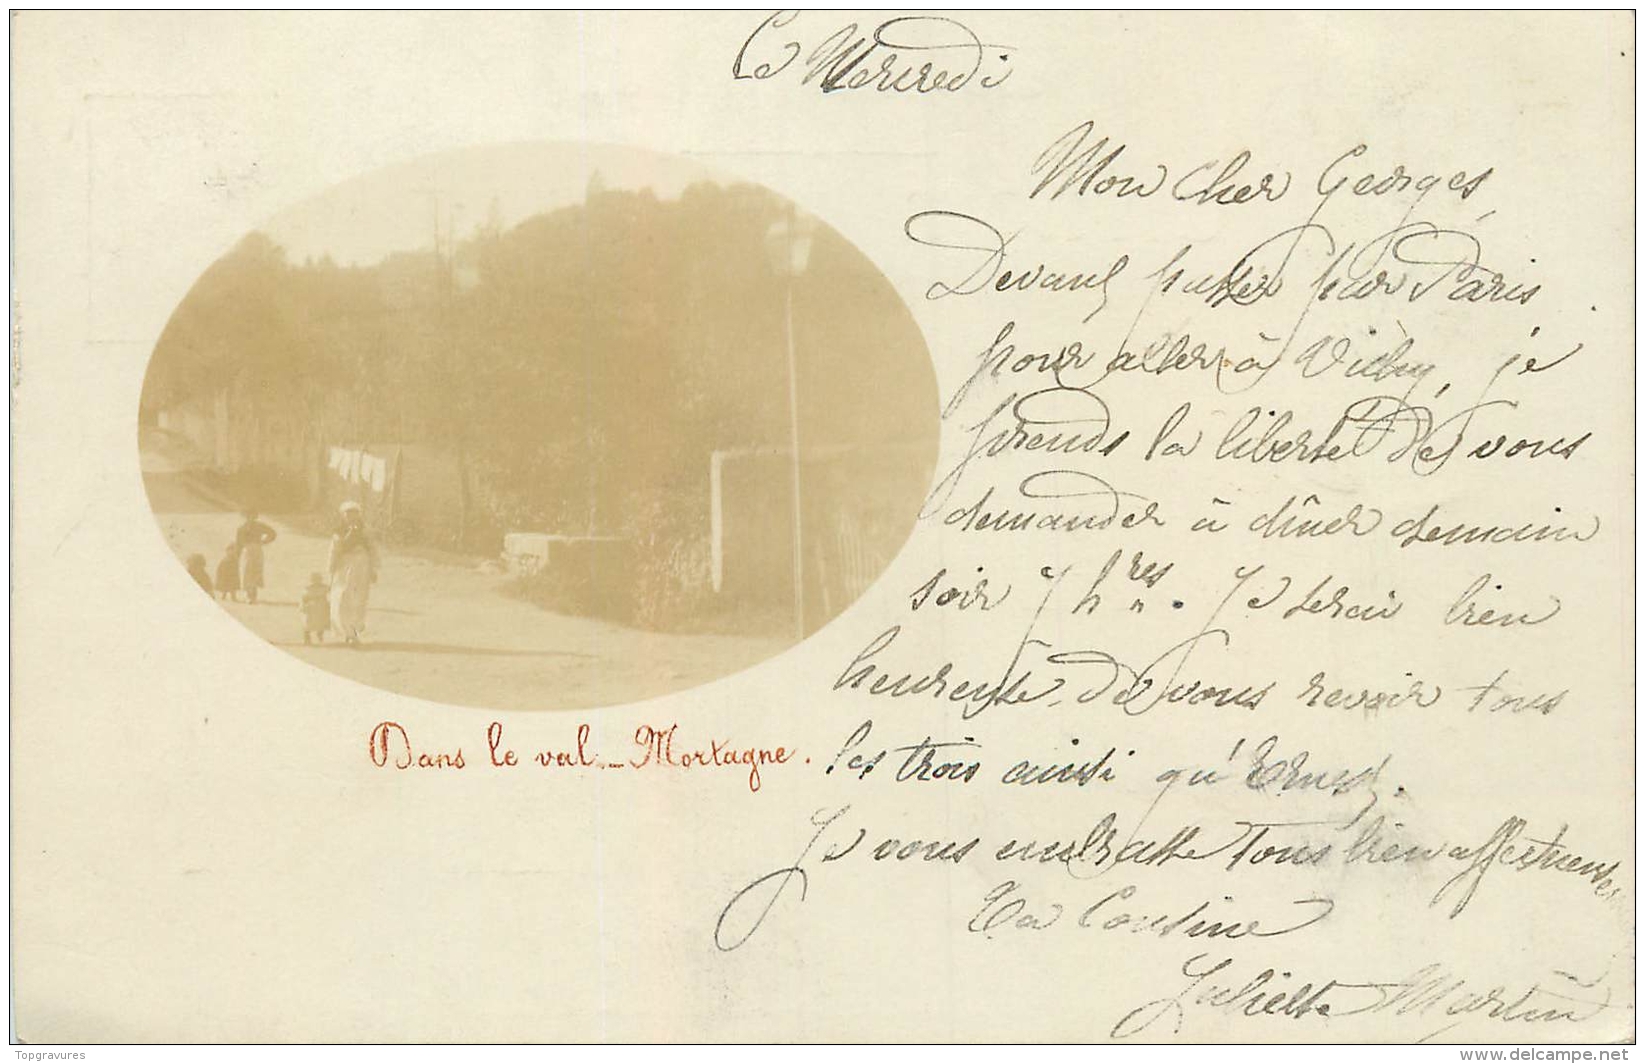 Ce Mercredi
Mon cher Georges,
Devant passer par Paris
pour aller à Vichy, je
prends la liberté de vous
demander à dîner demain
soir 7 hres. Je serai bien
heureuse de vous revoir tous
les trois ainsi qu'Ernest.
Je vous embrasse tous bien affectueuse
Ta Cousine
Juliette Martin
Dans le val _ Mortagne.
Topgravures
www.delcampe.net